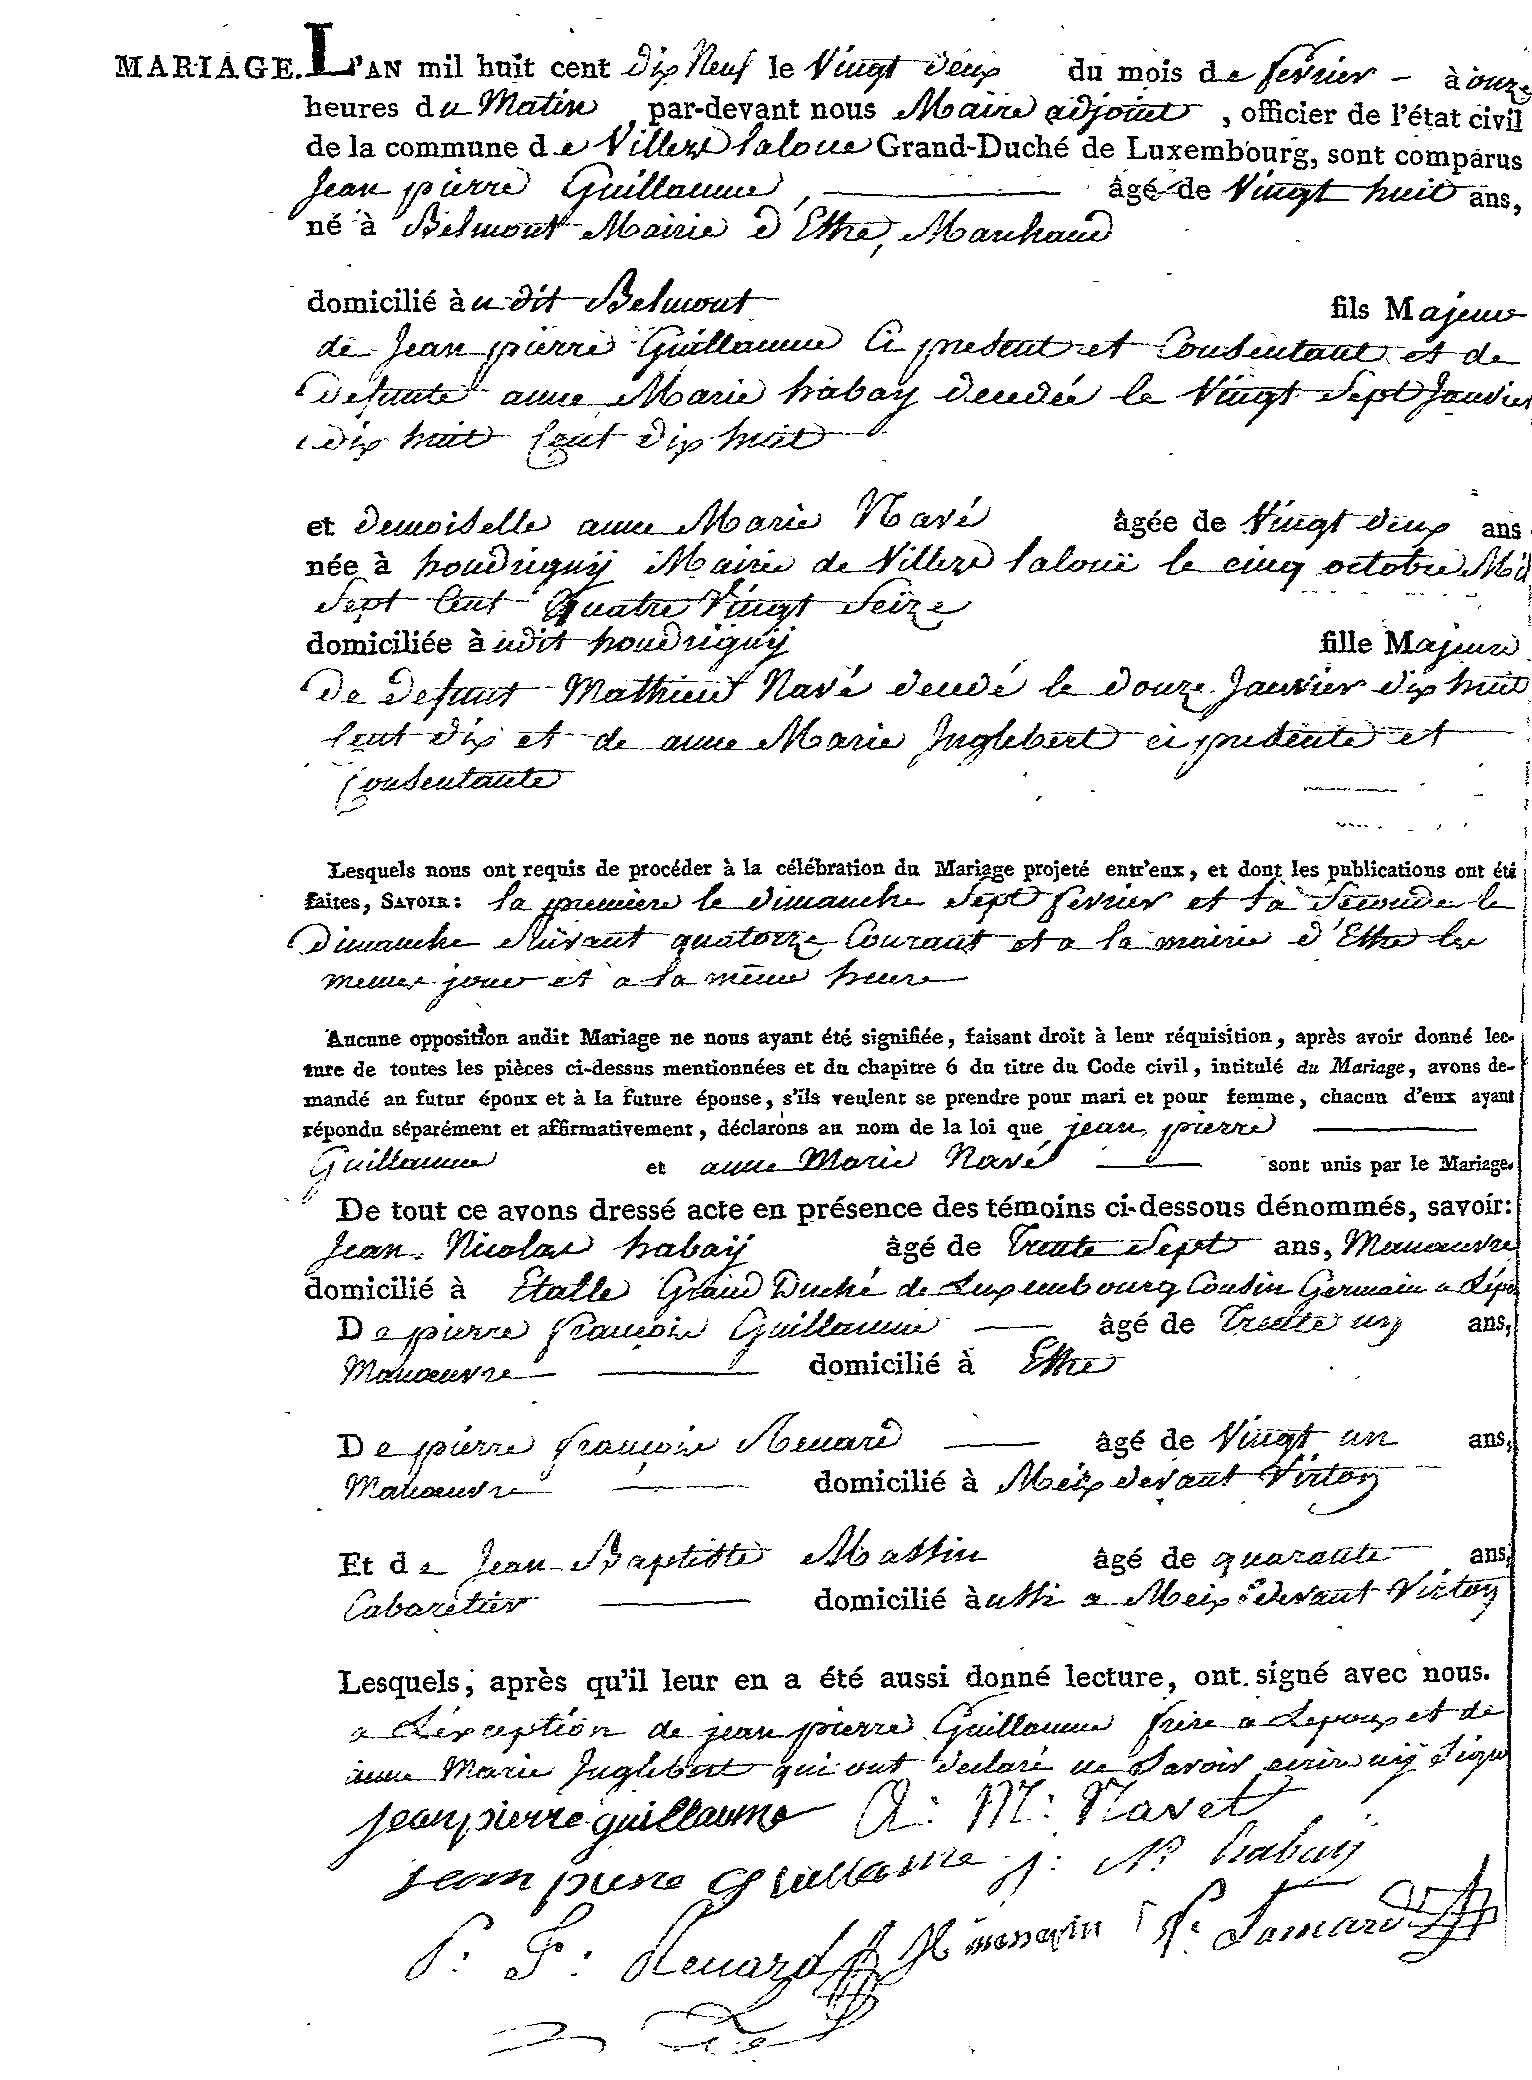 MARIAGE. L'AN mil huit cent dix Neuf le Vingt deux du mois de fevrier - à onze
heures du Matin, par-devant nous Maire adjoint, officier de l'état civil
de la commune de Villers laloue Grand-Duché de Luxembourg, sont comparus
Jean pierre Guillaume, âgé de Vingt huit ans,
né à Belmont Mairie d'Ethe, Marchand
domicilié àu dit Belmont fils Majeur
de Jean pierre Guillaume Ci present et Consentant et de
Defunte anne Marie habay decedée le Vingt Sept Janvier
dix huit Cent dix huit
et demoiselle anne Marie Navé âgée de Vingt deux ans
née à houdrigny Mairie de Villers laloüe le cinq octobre Mil
Sept Cent Quatre Vingt Seize
domiciliée à udit houdrigny fille Majeure
De Defunt Mathieu Navé decedé le douze Janvier dix huit
Cent dix et de anne Marie Inglebert ci presente et
Consentante
Lesquels nous ont requis de procéder à la célébration du Mariage projeté entr'eux, et dont les publications ont été
faites, SAVOIR: la première le dimanche Sept fevrier et la Seconde le
Dimanche Suivant quatorze Courant et a la mairie d'Ethe les
memes jour et a la même heure
Aucune opposition audit Mariage ne nous ayant été signifiée, faisant droit à leur réquisition, après avoir donné lec-
ture de toutes les pièces ci-dessus mentionnées et du chapitre 6 du titre du Code civil, intitulé du Mariage, avons de-
mandé au futur époux et à la future épouse, s'ils veulent se prendre pour mari et pour femme, chacun d'eux ayant
répondu séparément et affirmativement, déclarons au nom de la loi que jean pierre
Guillaume et anne Marie Navé sont unis par le Mariage.
De tout ce avons dressé acte en présence des témoins ci-dessous dénommés, savoir:
Jean Nicolas habay âgé de Trente Sept ans, Manœuvre
domicilié à Etalle Grand Duché de Luxembourg Cousin Germain a Lépo
De pierre françois Guillaume âgé de Trente un ans,
Manœuvre domicilié à Ethe
De pierre françois Renard âgé de Vingt un ans,
Manœuvre domicilié à Meix devant Virton
Et de Jean Baptiste Massin âgé de quarante ans,
Cabaretier domicilié àussi a Meix devant Virton
Lesquels, après qu'il leur en a été aussi donné lecture, ont signé avec nous.
a Lexception de jean pierre Guillaume frère a Lepoux et de
anne Marie Inglebert qui ont declaré ne Savoir ecrire nÿ Signe
jean pierre guillaume A: M: Navet
jean pierre Guillaume J: N: habay
P: F: Renard